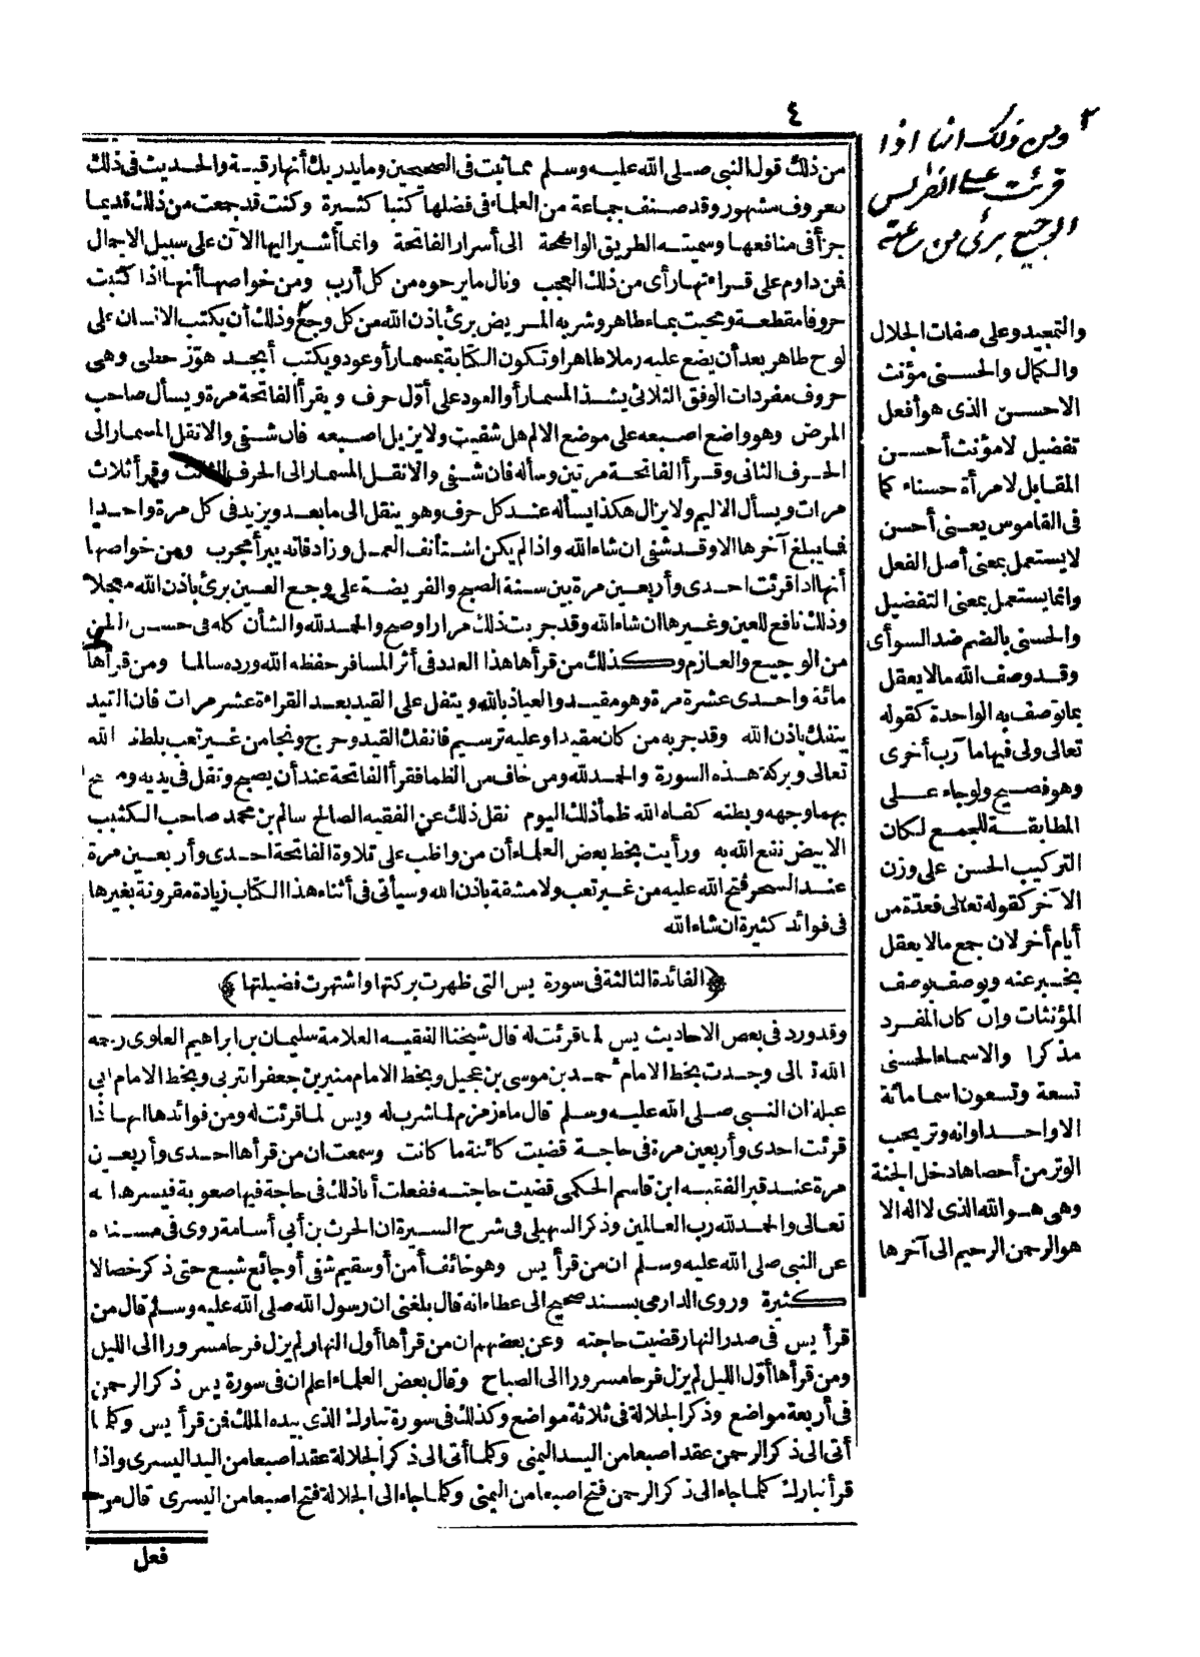 ٤
من ذلك قول النبي صلى الله عليه وسلم مما ثبت في الصحيحين وما يدريك أنها رقية والحديث في ذلك
معروف مشهور وقد صنف جماعة من العلماء في فضلها كتبا كثيرة وكنت قد جمعت من ذلك قديما
جزأ في منافعها وسميته الطريق الواضحة الى أسرار الفاتحة وانما أشير اليها الآن على سبيل الاجمال
فن داوم على قراءتها رأى من ذلك العجب ونال ما يرجوه من كل أرب ومن خواصها أنها اذا كتبت
حروفا مقطعة ومحيت بماء طاهر وشربه المريض برئ باذن الله من كل وجع وذلك أن يكتب الانسان على
لوح طاهر بعد أن يضع عليه رملا طاهرا وتكون الكتابة بمسمار أو عود ويكتب أبجد هوّز حطى وهى
حروف مفردات الوفق الثلاثى يشد المسمار أو العود على أوّل حرف ويقرأ الفاتحة مرة ويسأل صاحب
المرض وهو واضع اصبعه على موضع الالم هل شفيت ولا يزيل اصبعه فان شفى والا نقل المسمار الى
الحرف الثانى وقرأ الفاتحة مرتين وسأله فان شفى والا نقل المسمار الى الحرف الثالث وقرأ ثلاث
مرات ويسأل الاليم ولا يزال هكذا يسأله عند كل حرف وهو ينقل الى ما بعد ويزيد فى كل مرة واحدا
فما يبلغ آخرها الا وقد شفى ان شاء الله واذا لم يكن اشتأنف العمل وزاد فانه يبرأ مجرب ومن خواصها
أنها اذا قرئت احدى وأربعين مرة بين سنة الصبح والفريضة على وجع العين برئ باذن الله معجلا
وذلك نافع للعين وغيرها ان شاء الله وقد جربت ذلك مرارا وصح والحمد لله والشأن كله فى حسن الظن
من الوجيع والعازم وكذلك من قرأها هذا العدد فى أثر المسافر حفظه الله ورده سالما ومن قرأها
مائة واحدى عشرة مرة وهو مقيد والعياذ بالله ويتفل على القيد بعد القراءة عشر مرات فان القيد
ينفك باذن الله وقد جربه من كان مقيدا وعليه ترسيم فانفك القيد وخرج ونجا من غير تعب بلطف الله
تعالى وبركة هذه السورة والحمد لله ومن خاف من الظما فقرأ الفاتحة عند أن يصبح وتفل فى يديه ومسح
بهما وجهه وبطنه كفاه الله ظمأ ذلك اليوم نقل ذلك عن الفقيه الصالح سالم بن محمد صاحب الكثيب
الابيض نفع الله به ورأيت بخط بعض العلماء أن من واظب على تلاوة الفاتحة احدى وأربعين مرة
عند السحر فتح الله عليه من غير تعب ولا مشقة باذن الله وسيأتى فى أثناء هذا الكتاب زيادة مقرونة بغيرها
فى فوائد كثيرة ان شاء الله
﴿الفائدة الثالثة فى سورة يس التى ظهرت بركتها واشتهرت فضيلتها﴾
وقد ورد فى بعض الاحاديث يس لما قرئت له قال شيخنا الفقيه العلامة سليمان بن ابراهيم العلوى رحمه
الله تعالى وجدت بخط الامام أحمد بن موسى بن عجيل وبخط الامام منير بن جعفر وبخط الامام أبي
عبله ان النبي صلى الله عليه وسلم قال ماء زمزم لما شرب له ويس لما قرئت له ومن فوائدها انها اذا
قرئت احدى وأربعين مرة فى حاجة قضيت كائنة ما كانت وسمعت ان من قرأها احدى وأربعين
مرة عند قبر الفقيه ابن قاسم الحكمى قضيت حاجته ففعلت أنا ذلك فى حاجة فيها صعوبة فيسرها الله
تعالى والحمد لله رب العالمين وذكر السهيلى فى شرح السيرة ان الحرث بن أبي أسامة روى فى مسنده
عن النبي صلى الله عليه وسلم ان من قرأ يس وهو خائف أمن أو سقيم شفى أو جائع شبع حتى ذكر خصالا
كثيرة وروى الدارمى بسند صحيح الى عطاء انه قال بلغنى ان رسول الله صلى الله عليه وسلم قال من
قرأ يس فى صدر النهار قضيت حاجته وعن بعضهم ان من قرأها أول النهار لم يزل فرحا مسرورا الى الليل
ومن قرأها أوّل الليل لم يزل فرحا مسرورا الى الصباح وقال بعض العلماء اعلم ان فى سورة يس ذكر الرحمن
فى أربعة مواضع وذكر الجلالة فى ثلاثة مواضع وكذلك فى سورة تبارك الذى بيده الملك فن قرأ يس وكلما
أتى الى ذكر الرحمن عقد اصبعا من اليد اليمنى وكلما أتى الى ذكر الجلالة عقد اصبعا من اليد اليسرى واذا
قرأ تبارك كلما جاء الى ذكر الرحمن فتح اصبعا من اليمنى وكلما جاء الى الجلالة فتح اصبعا من اليسرى قال من
فعل
٢ ومن ذلك انها اذا
قرئت على الضرس
الوجيع برئ من
والتمجيد وعلى صفات الجلال
والكمال والحسنى مؤنث
الاحسن الذى هو أفعل
تفضيل لا مؤنث أحسن
المقابل لامرأة حسناء كما
فى القاموس يعنى أحسن
لا يستعمل بمعنى أصل الفعل
وانما يستعمل بمعنى التفضيل
والحسنى بالضم ضد السوأى
وقد وصف الله ما لا يعقل
بما توصف به الواحدة كقوله
تعالى ولى فيها مآرب أخرى
وهو فصيح ولو جاء على
المطابقة للجمع لكان
التركيب الحسن على وزن
الآخر كقوله تعالى فعدّة من
أيام أخر لان جمع ما لا يعقل
يخبر عنه ويوصف بوصف
المؤنثات وان كان المفرد
مذكرا والاسماء الحسنى
تسعة وتسعون اسما مائة
الا واحدا وانه وتر يحب
الوتر من أحصاها دخل الجنة
وهى هو الله الذى لا اله الا
هو الرحمن الرحيم الى آخرها